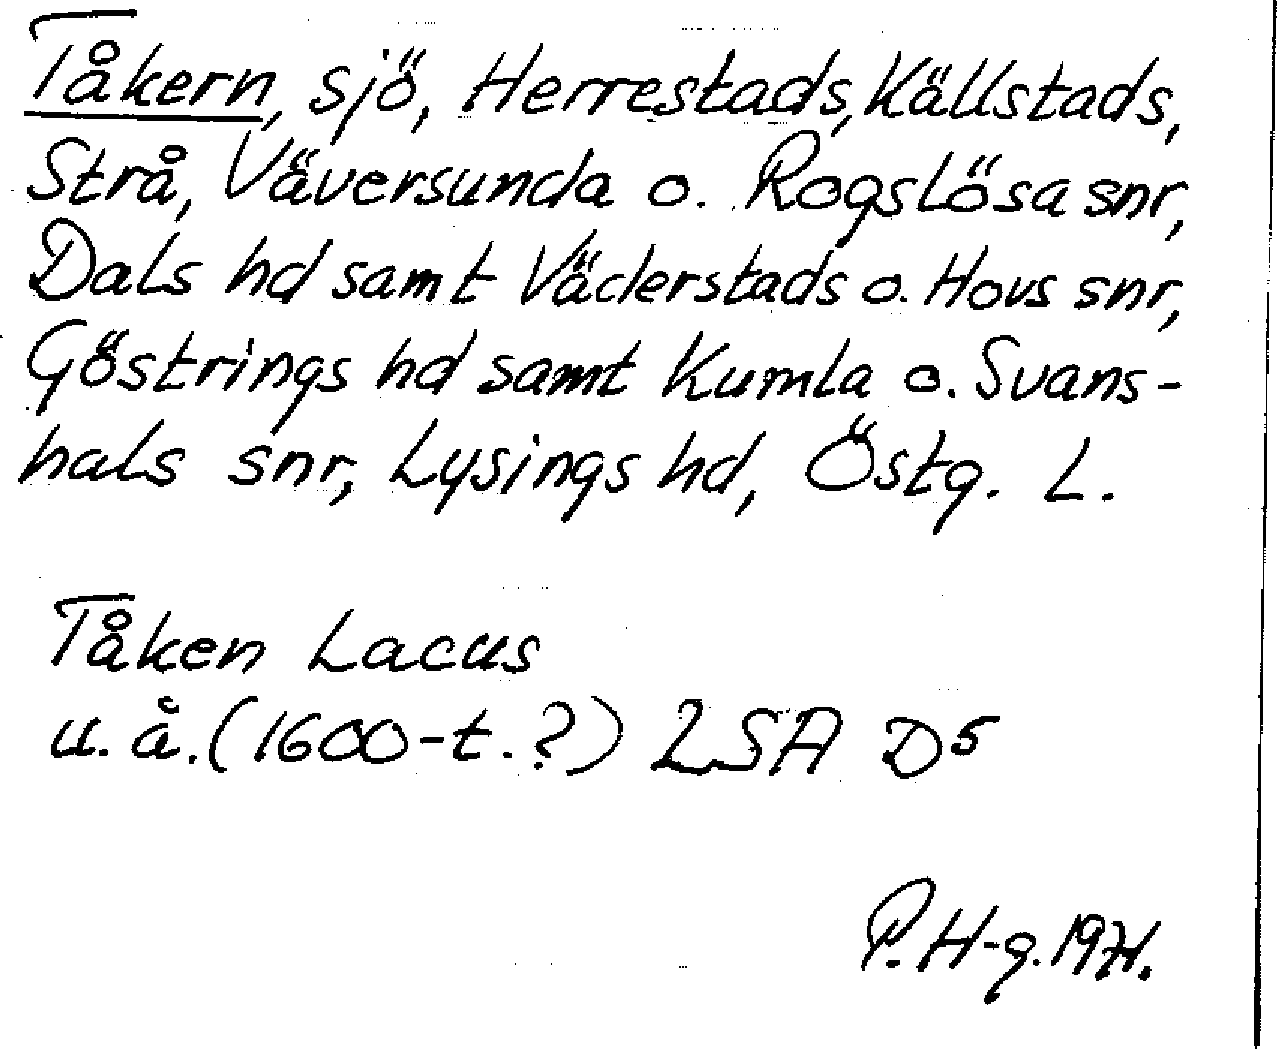 Tåkern, sjö, Herrestads, Källstads,
Strå, Väversunda o. Rogslösa snr,
Dals hd samt Väderstads o. Hovs snr,
Göstrings hd samt Kumla o. Svans-
hals snr, Lysings hd, Östg. L.
Tåken Lacus
u.å. (1600-t.?) LSA D5
P. H-g. 1971.